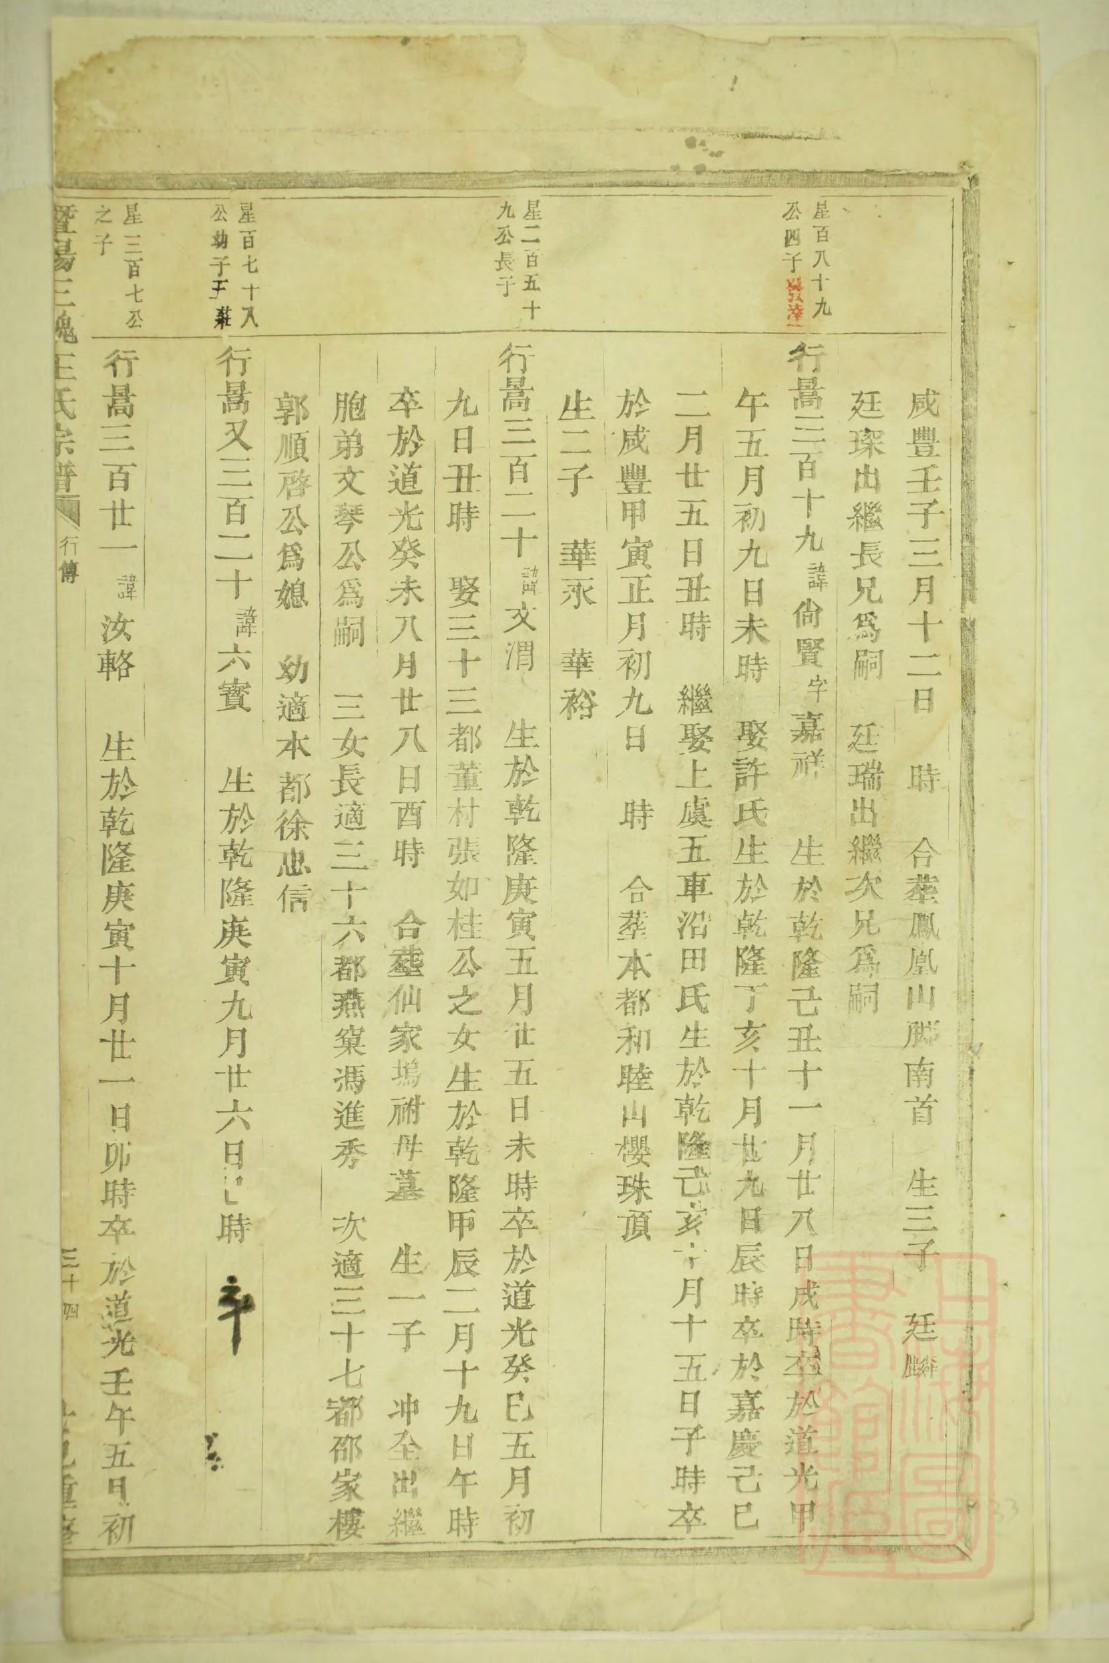 咸豐壬子三月十二日 時 合塟鳳凰山脚南首 生三子 廷麟
廷琛出繼長兄爲嗣 廷瑞出繼次兄爲嗣
星百八十九
公四子
行暠三百十九諱尙賢字嘉祥 生於乾隆己丑十一月廿八日戌時卒於道光甲
午五月初九日未時 娶許氏生於乾隆丁亥十月廿九日辰時卒於嘉慶己巳
二月廿五日丑時 繼娶上虞五車沿田氏生於乾隆己亥十月十五日子時卒
於咸豐甲寅正月初九日 時 合塟本都和睦山櫻珠頂
生二子 華永 華裕
星二百五十
九公長子
行暠三百二十諱文渭 生於乾隆庚寅五月廿五日未時卒於道光癸巳五月初
九日丑時 娶三十三都董村張如桂公之女生於乾隆甲辰二月十九日午時
卒於道光癸未八月廿八日酉時 合塟仙家塢祔母墓 生一子 冲全出繼
胞弟文琴公爲嗣 三女長適三十六都燕窠馮進秀 次適三十七都邵家樓
郭順啓公爲媳 幼適本都徐忠信
星百七十八
公幼子
行暠又三百二十諱六寳 生於乾隆庚寅九月廿六日巳時 卒
星三百七公
之子
行暠三百廿一諱汝輅 生於乾隆庚寅十月廿一日卯時卒於道光壬午五月初
暨陽三槐王氏宗譜 行傳 三十四